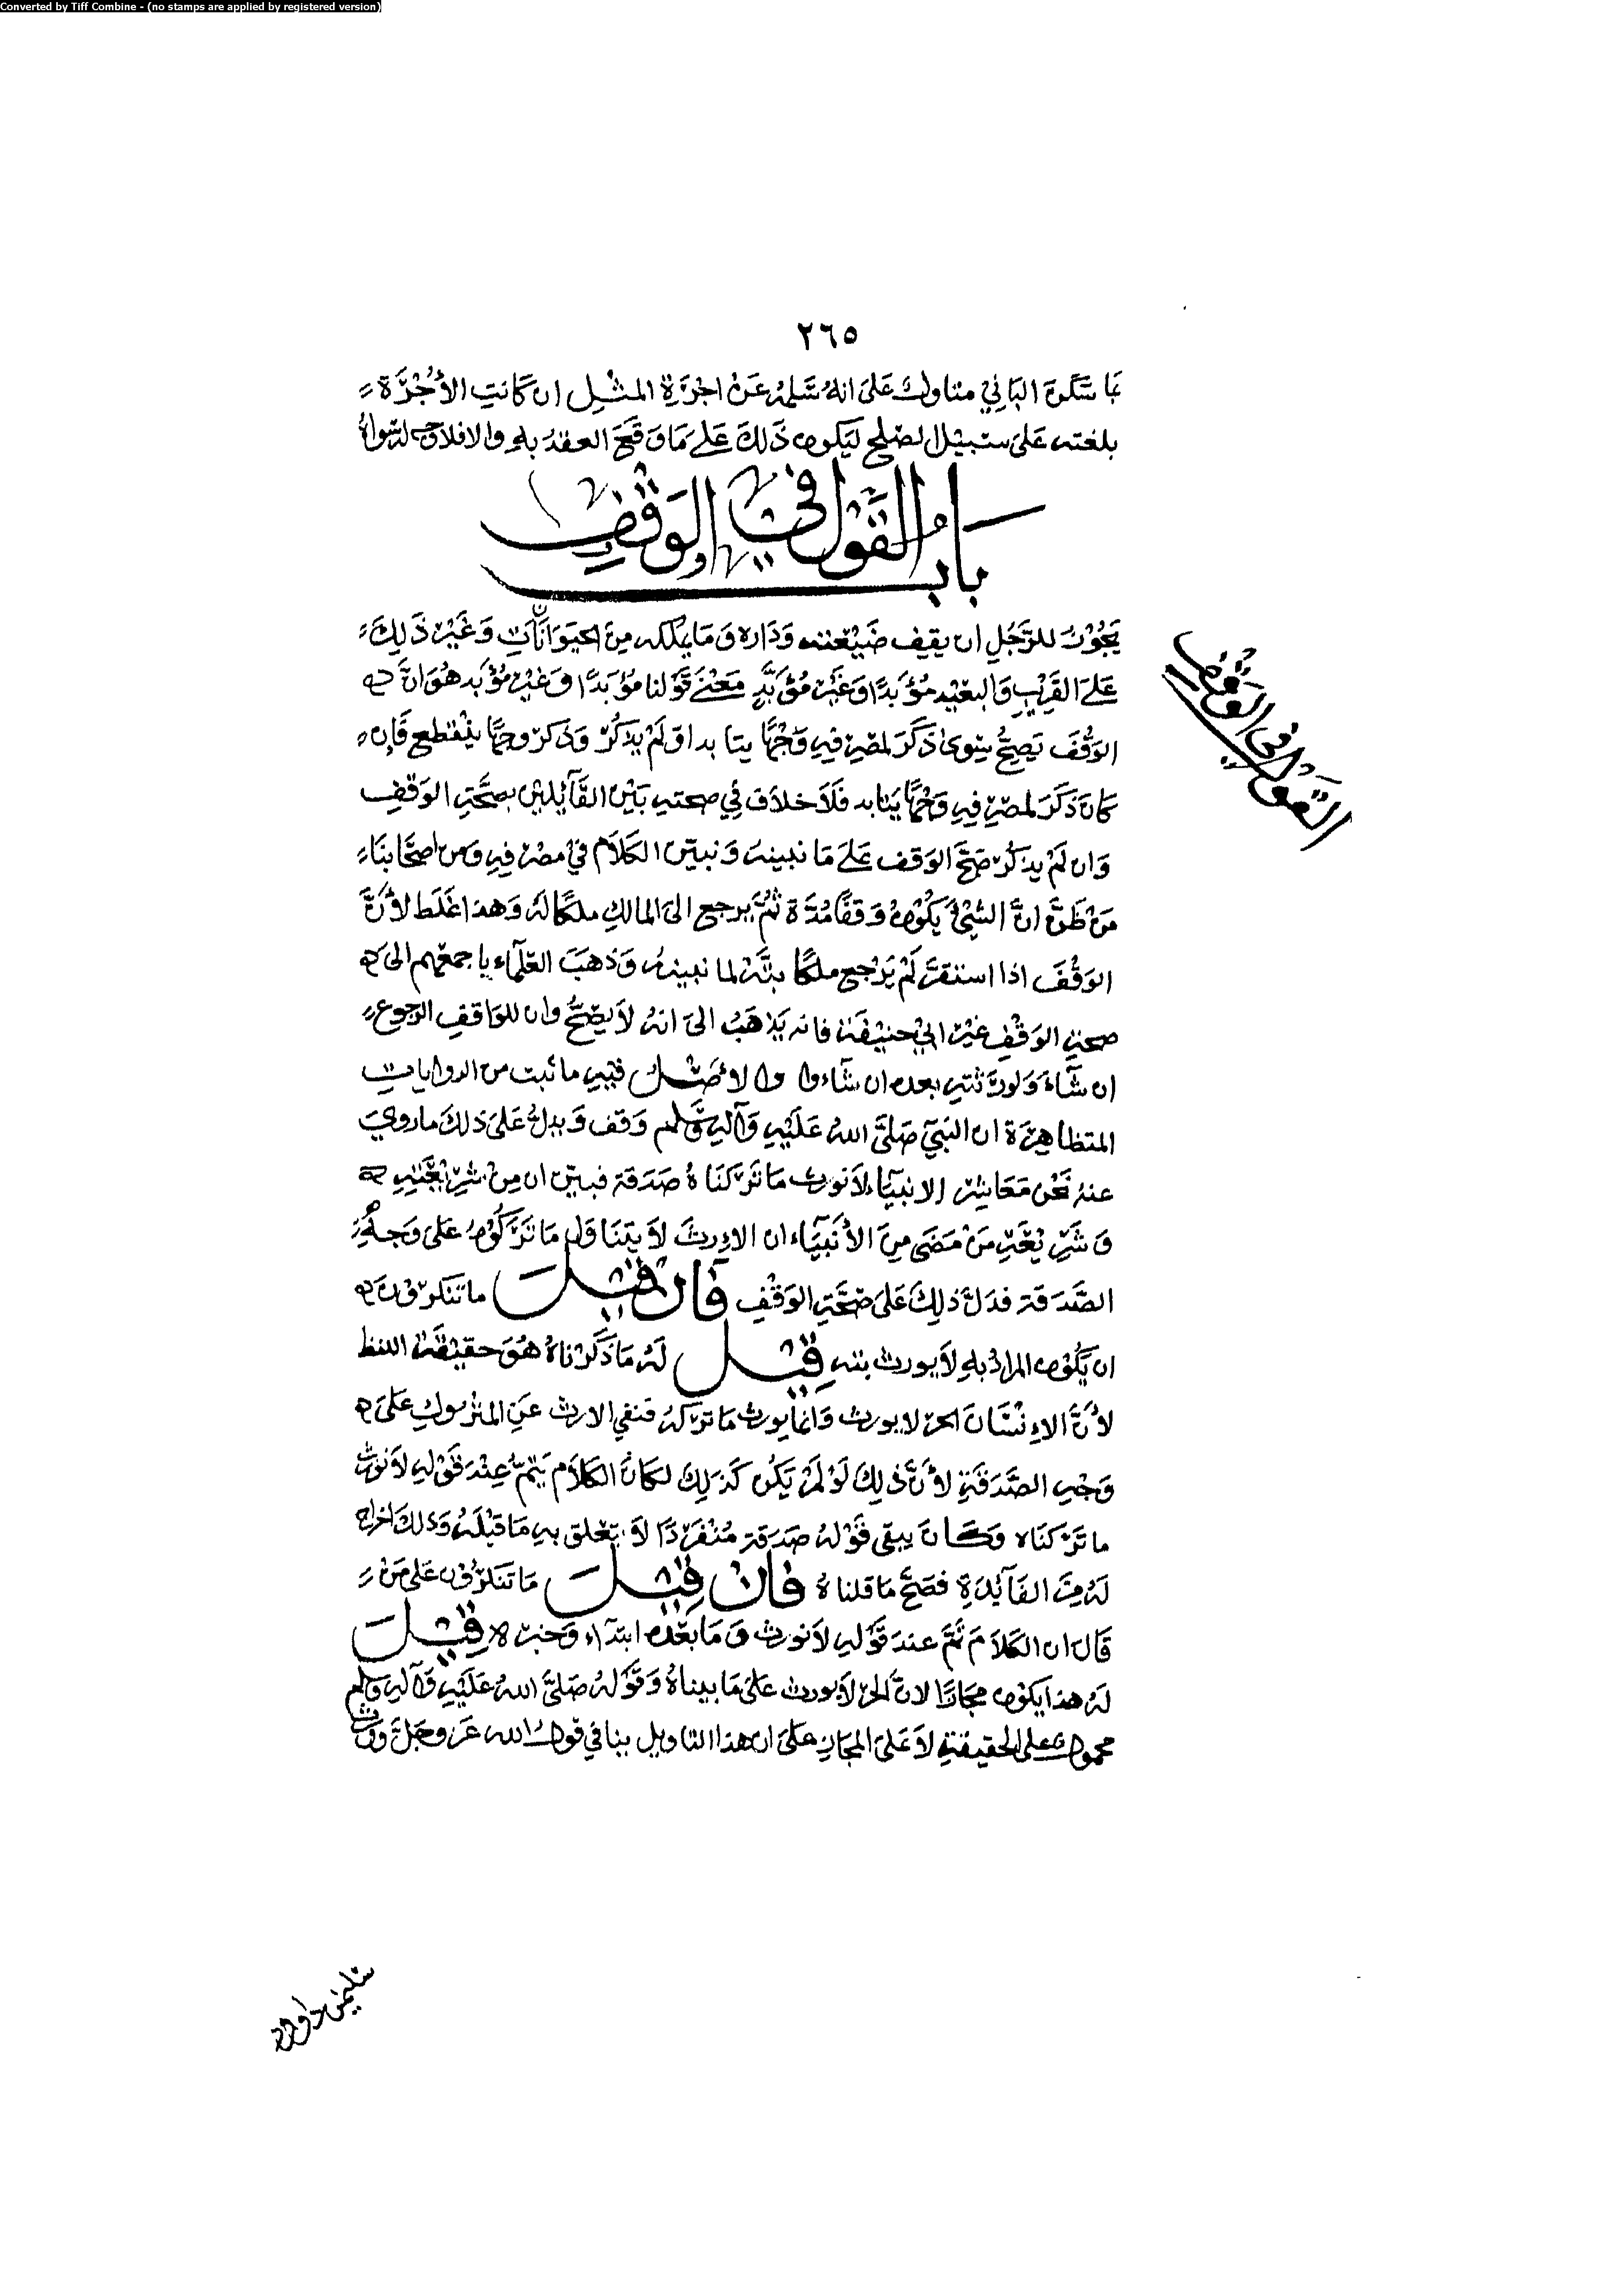 Converted by Tiff Combine - (no stamps are applied by registered version)
٢٦٥
سكن الباني متاول على انه سلمه عن اجرة المثل ان كانت الأجرة
بلغته على سبيل الصلح ليكون ذلك على ما وقع العقد به والا فلا وجه لسواه
باب القول في الوقف
يجوز للرجل ان يقف ضيعته وداره وما يملكه من الحيوانات وغير ذلك
على القريب والبعيد مؤبدًا وغير مؤبد معنى قولنا مؤبدًا وغير مؤبد هو ان
القول في الوقف
الوقف يصح سوى ذكر لمصرفه وجهًا يتابد او لم يذكر وذكر وجهًا ينقطع فإن
كان ذكر لمصرفه وجهًا يتابد فلا خلاف في صحته بين القآئلين بصحة الوقف
وان لم يذكر صح الوقف على ما نبينه ونبين الكلام في مصرفه ومن اصحابنا
من ظن ان الشيء يكون وقفًا مدة ثم يرجع الى المالك ملكًا له وهذا غلط لأن
الوقف اذا استقر لم يرجع ملكًا بتة لما نبينه وذهب العلمآء باجمعهم الى
صحة الوقف غير ابي حنيفة فانه يذهب الى انه لا يصح وان للواقف الرجوع
ان شآء ولورثته بعده ان شآءوا والأصل فيه ما ثبت من الروايات
المتظاهرة ان النبي صلى الله عليه وآله وسلم وقف ويدل على ذلك ما روي
عنه نحن معاشر الانبيآء لا نورث ما تركناه صدقة فبين ان من شريعته
وشريعة من مضى من الأنبيآء ان الإرث لا يتناول ما تركوه على وجه
الصدقة فدل ذلك على صحة الوقف فان قيل ما تنكرون
ان يكون المراد به لا يورث بتة قيل له ما ذكرناه هو حقيقة اللفظ
لأن الإنسان الحر لا يورث وانما يورث ما تركه فنفي الارث عن المتروك على
وجه الصدقة لأن ذلك لو لم يكن كذلك لكان الكلام يتم عند قوله لا نورث
ما تركناه وكان يبقى قوله صدقة منفردًا لا يتعلق به ما قبله وذلك اخراج
له من الفآئدة فصح ما قلناه فان قيل ما تنكرون على من
قال ان الكلام تم عند قوله لا نورث وما بعده ابتدآء وخبره قيل
له هذا يكون مجازا لان الحر لا يورث على ما بيناه وقوله صلى الله عليه وآله وسلم
محمول على الحقيقة لا على المجاز على ان هذا التاويل ينافي قول الله عز وجل وورث
سليمن داود